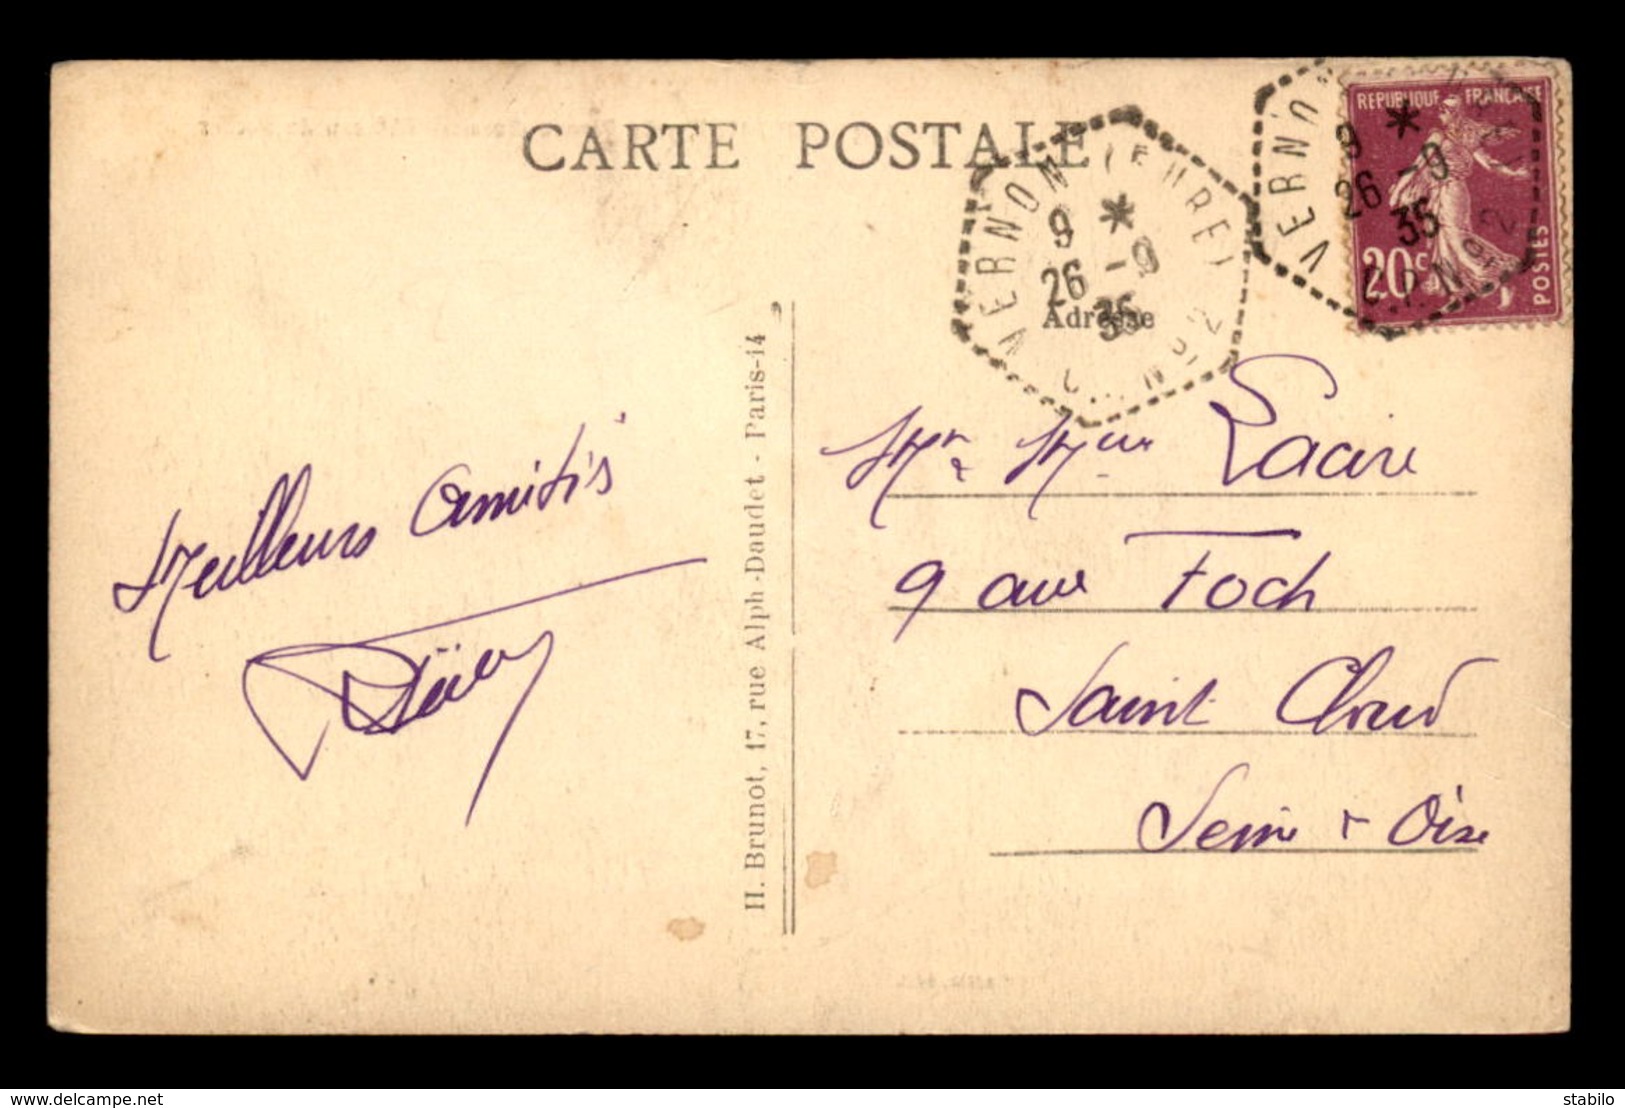 CARTE POSTALE
REPUBLIQUE FRANÇAISE
20c
POSTES
VERNON (EURE)
9 *
26 - 9
35
C.P. N°2
VERNO
9 *
26 - 9
35
Adresse
Mr & Mme Lacire
9 ave Foch
Saint Cloud
Seine & Oise
Meilleurs Amitiés
H. Brunot, 17, rue Alph-Daudet - Paris-14
www.delcampe.net
stabilo